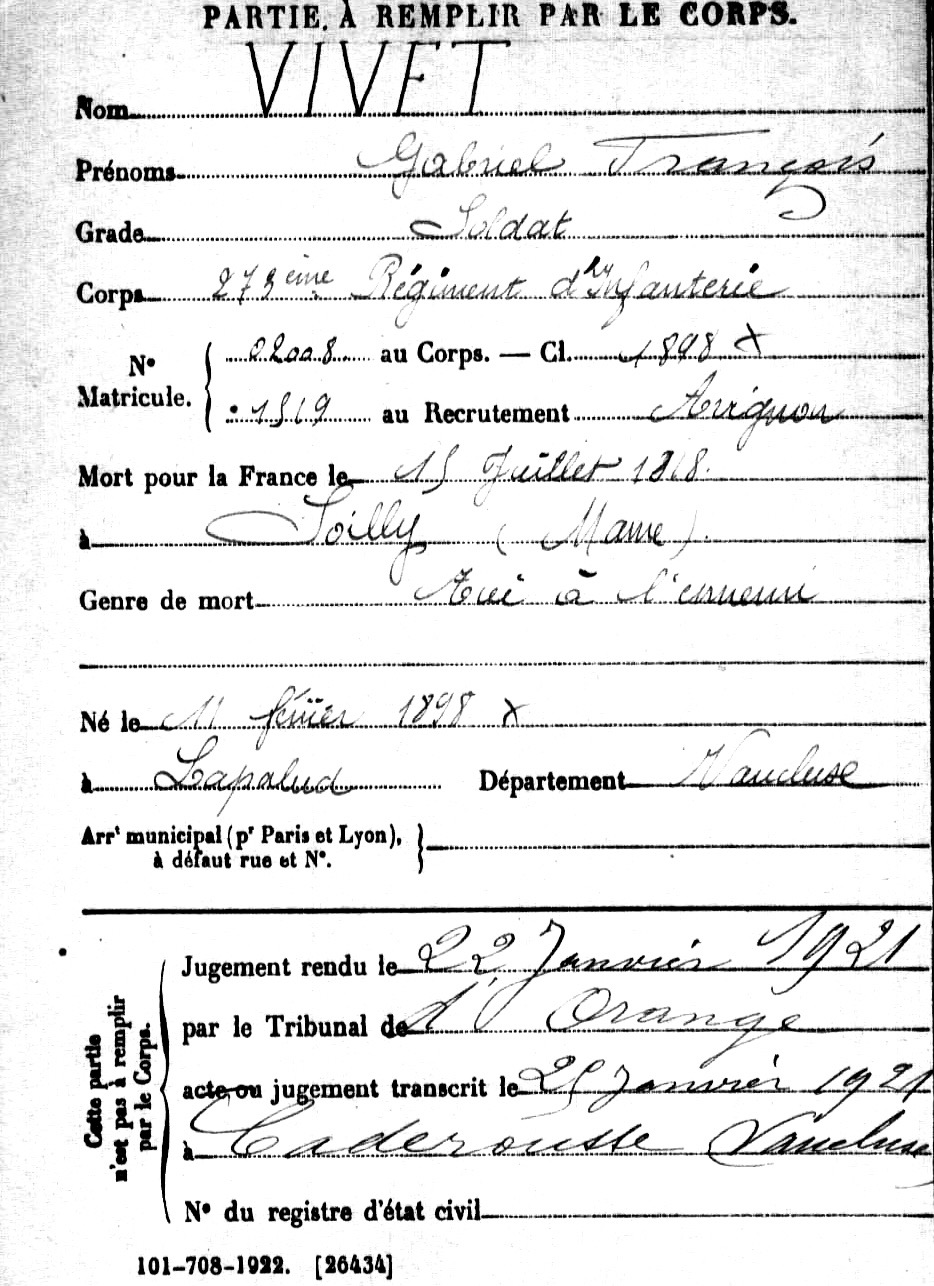 PARTIE À REMPLIR PAR LE CORPS.
Nom VIVET
Prénoms Gabriel François
Grade Soldat
Corps 273ème Régiment d'Infanterie
N° Matricule. 02008 au Corps. — Cl. 1898 X
1519 au Recrutement Avignon
Mort pour la France le 15 Juillet 1918.
à Soilly (Marne).
Genre de mort Tué à l'ennemi
Né le 11 février 1898 X
à Lapalud Département Vaucluse
Arrt municipal (pr Paris et Lyon), à défaut rue et N°.
Cette partie n'est pas à remplir par le Corps.
Jugement rendu le 22 Janvier 1921
par le Tribunal de d'Orange
acte ou jugement transcrit le 25 Janvier 1921
à Caderousse Vaucluse
N° du registre d'état civil
101-708-1922. [26434]